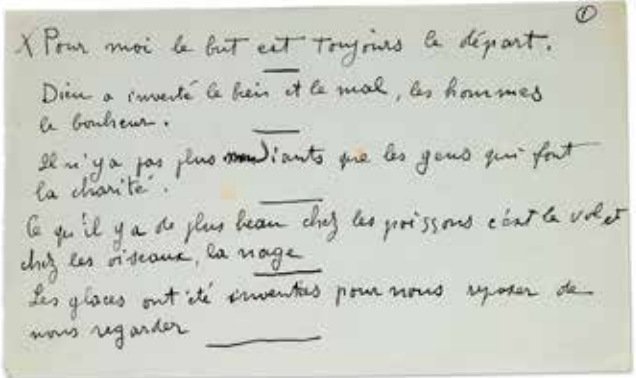 ①
X Pour moi le but est toujours le départ.
Dieu a inventé le bien et le mal, les hommes
le bonheur.
Il n'y a pas plus mendiants que les gens qui font
la charité.
Ce qu'il y a de plus beau chez les poissons c'est le vol et
chez les oiseaux, la nage
Les glaces ont été inventées pour nous reposer de
nous regarder